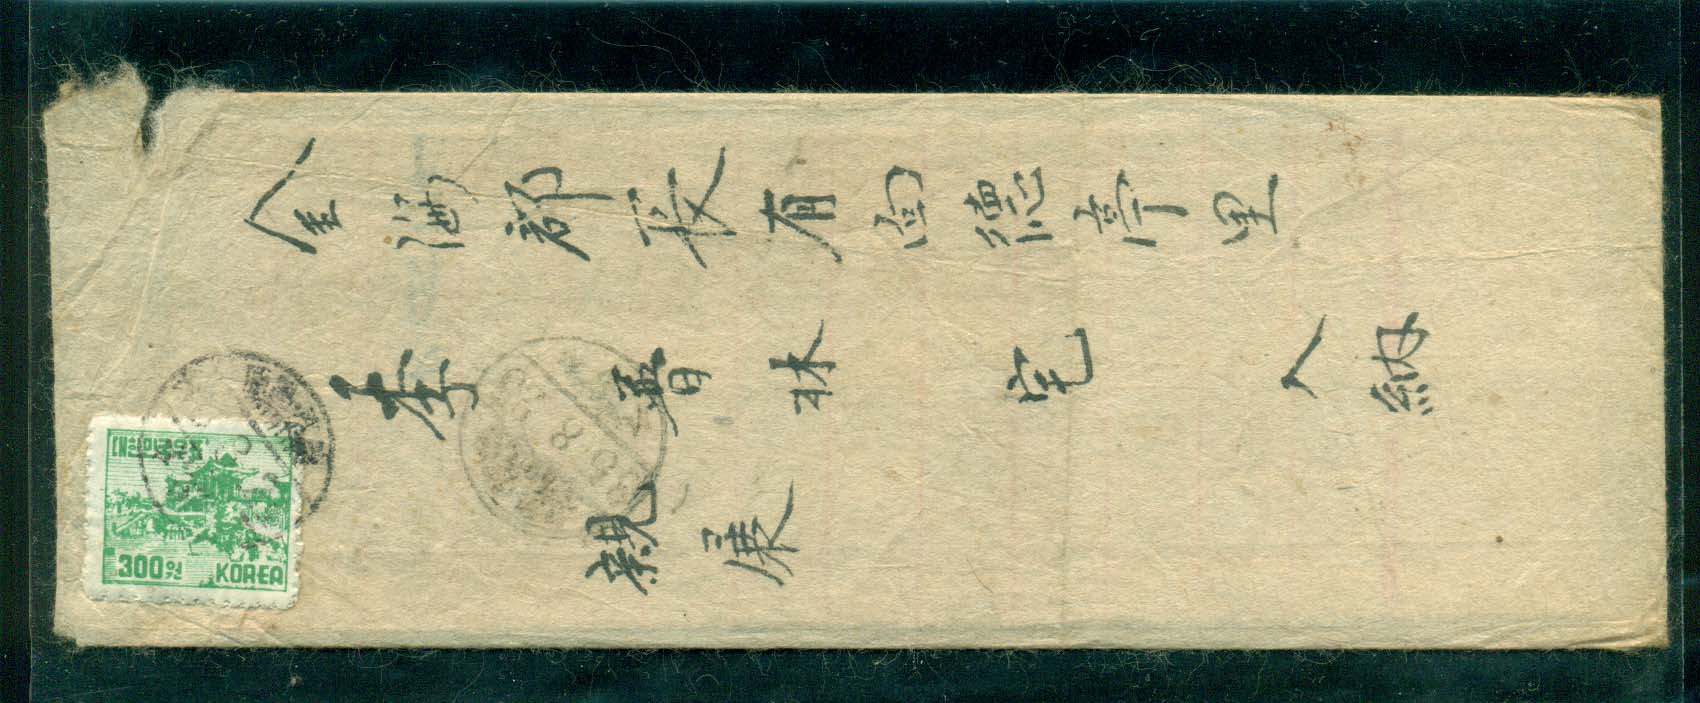 金海郡長有面德亭里
李 林 宅 入納
親展
대한민국우표
300원 KOREA